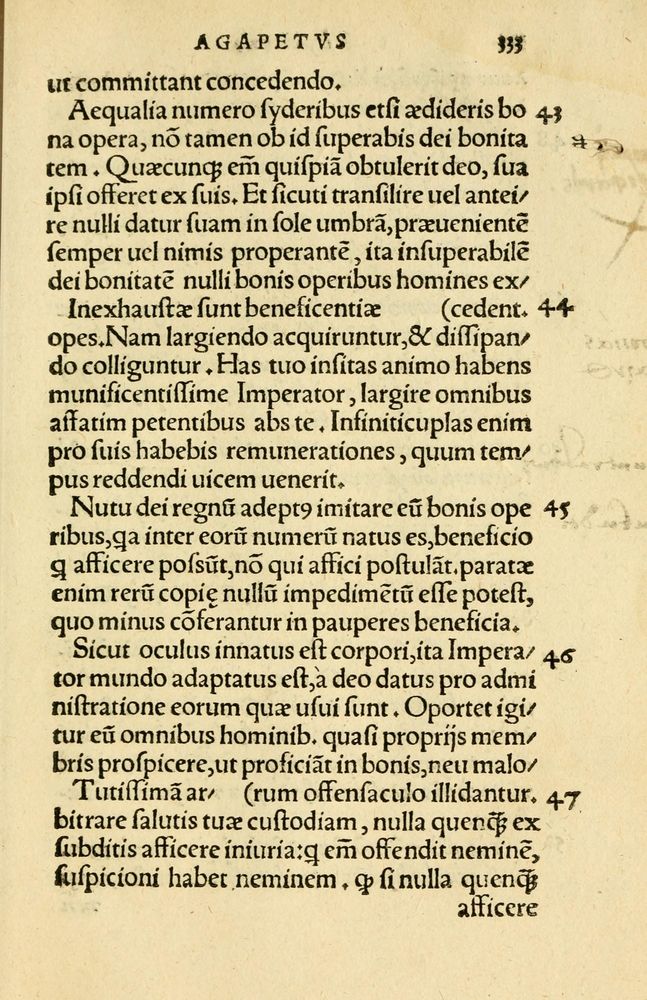 AGAPETVS 333
ut committant concedendo.
Aequalia numero syderibus etsi ædideris bo 43
na opera, nõ tamen ob id superabis dei bonita
tem. Quæcunqꝫ em̃ quispiã obtulerit deo, sua
ipsi offeret ex suis. Et sicuti transilire uel antei/
re nulli datur suam in sole umbrã, præuenientẽ
semper uel nimis properantẽ, ita insuperabilẽ
dei bonitatẽ nulli bonis operibus homines ex/
Inexhaustæ sunt beneficentiæ (cedent. 44
opes. Nam largiendo acquiruntur, & dissipan/
do colliguntur. Has tuo insitas animo habens
munificentissime Imperator, largire omnibus
affatim petentibus abs te. Infiniticuplas enim
pro suis habebis remunerationes, quum tem/
pus reddendi uicem uenerit.
Nutu dei regnũ adeptꝯ imitare eũ bonis ope 45
ribus, qa inter eorũ numerũ natus es, beneficio
q̃ afficere possũt, nõ qui affici postulãt. paratæ
enim rerũ copię nullũ impedimẽtũ esse potest,
quo minus cõferantur in pauperes beneficia.
Sicut oculus innatus est corpori, ita Impera/ 46
tor mundo adaptatus est, à deo datus pro admi
nistratione eorum quæ usui sunt. Oportet igi/
tur eũ omnibus hominib. quasi proprijs mem/
bris prospicere, ut proficiãt in bonis, neu malo/
Tutissimã ar/ (rum offensaculo illidantur. 47
bitrare salutis tuæ custodiam, nulla quenqꝫ ex
subditis afficere iniuria: q̃ em̃ offendit neminẽ,
suspicioni habet neminem. ꝙ si nulla quenqꝫ
afficere